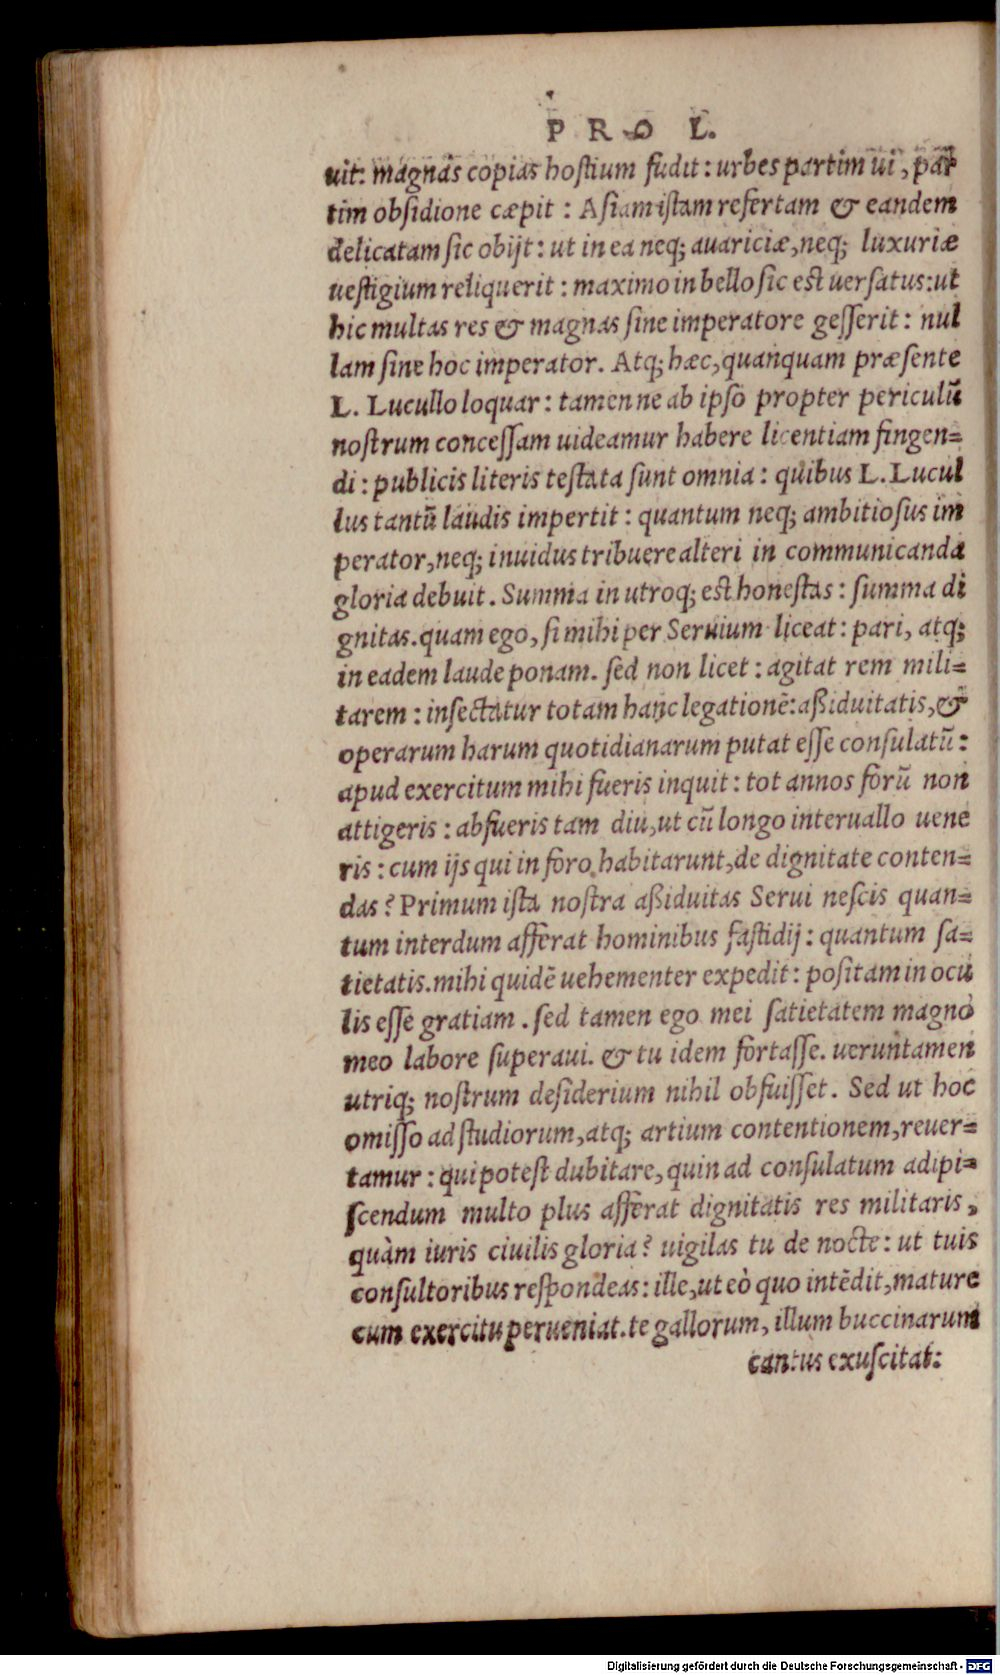 P R O L.
uit: magnas copias hoſtium fudit: urbes partim ui, par
tim obſidione cæpit : Aſiam iſtam refertam & eandem
delicatam ſic obijt: ut in ea neq; auariciæ, neq; luxuriæ
ueſtigium reliquerit : maximo in bello ſic eſt uerſatus: ut
hic multas res & magnas ſine imperatore geſſerit: nul
lam ſine hoc imperator. Atq; hæc, quanquam præſente
L. Lucullo loquar : tamen ne ab ipſo propter periculū
noſtrum conceſſam uideamur habere licentiam fingen=
di : publicis literis teſtata ſunt omnia : quibus L. Lucul
lus tantū laudis impertit : quantum neq; ambitioſus im
perator, neq; inuidus tribuere alteri in communicanda
gloria debuit. Summa in utroq; eſt honeſtas : ſumma di
gnitas. quam ego, ſi mihi per Seruium liceat : pari, atq;
in eadem laude ponam. ſed non licet : agitat rem mili=
tarem : inſectatur totam hanc legationē: aßiduitatis, &
operarum harum quotidianarum putat eſſe conſulatū :
apud exercitum mihi fueris inquit : tot annos forū non
attigeris : abfueris tam diu, ut cū longo interuallo uene
ris : cum ijs qui in foro habitarunt, de dignitate conten=
das? Primum iſta noſtra aßiduitas Serui neſcis quan=
tum interdum afferat hominibus faſtidij : quantum ſa=
tietatis. mihi quidē uehementer expedit : poſitam in ocu
lis eſſe gratiam . ſed tamen ego mei ſatietatem magno
meo labore ſuperaui. & tu idem fortaſſe. ueruntamen
utriq; noſtrum deſiderium nihil obfuiſſet. Sed ut hoc
omiſſo ad ſtudiorum, atq; artium contentionem, reuer=
tamur : qui poteſt dubitare, quin ad conſulatum adipi=
ſcendum multo plus afferat dignitatis res militaris,
quàm iuris ciuilis gloria? uigilas tu de nocte : ut tuis
conſultoribus reſpondeas : ille, ut eò quo intēdit, mature
cum exercitu perueniat. te gallorum, illum buccinarum
cantus exuſcitat:
Digitalisierung gefördert durch die Deutsche Forschungsgemeinschaft - DFG